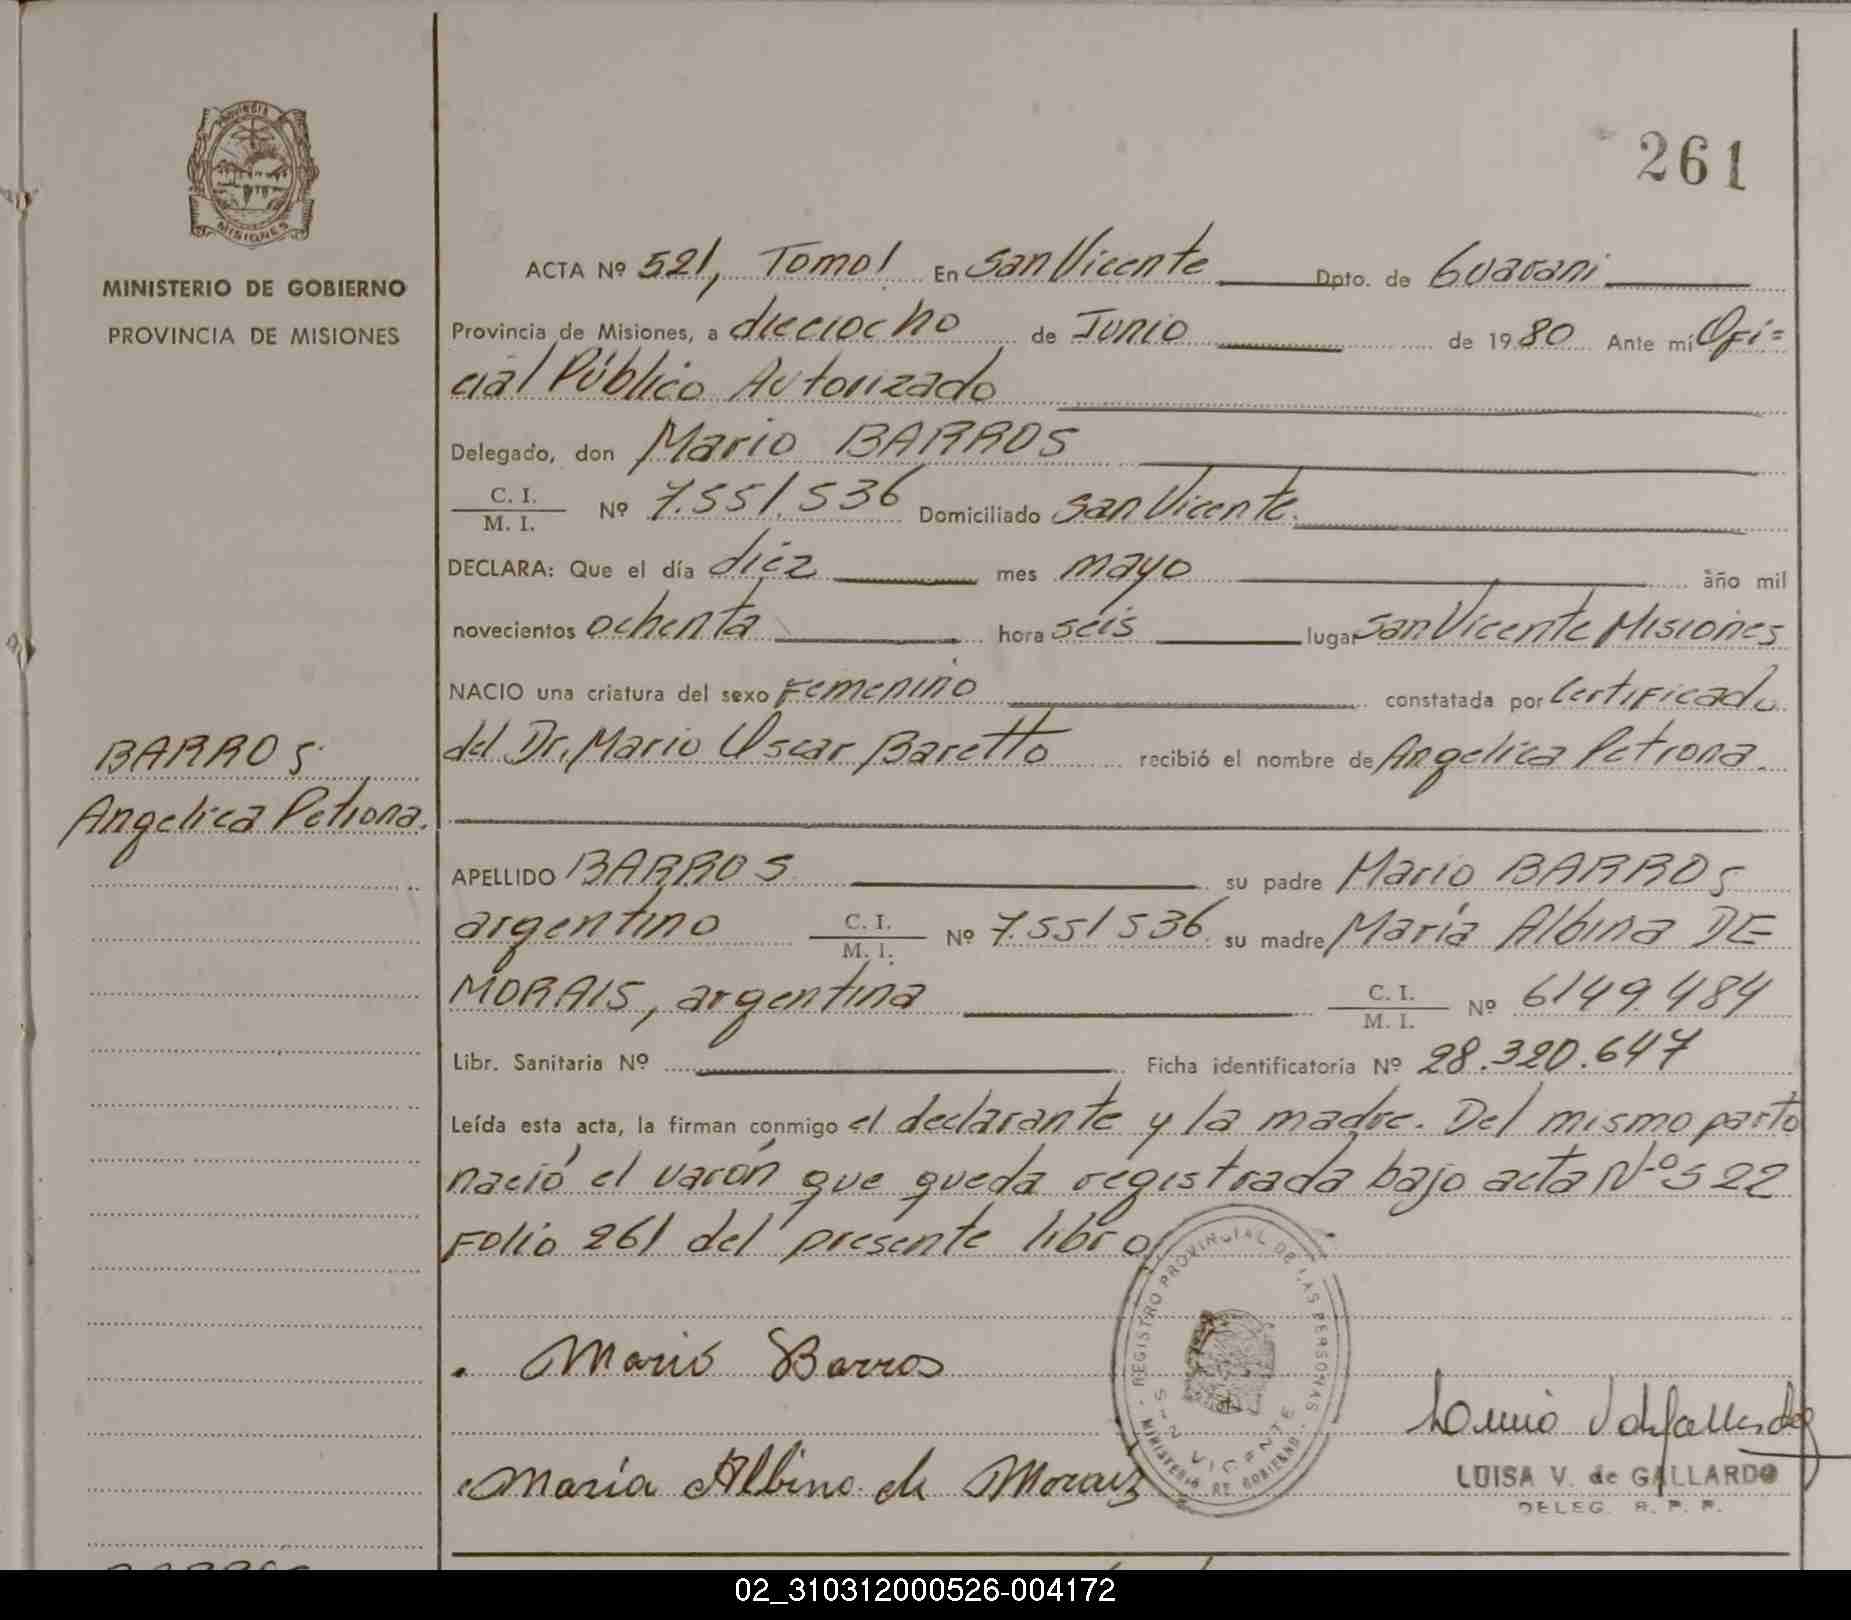 PROVINCIA
MISIONES
MINISTERIO DE GOBIERNO
PROVINCIA DE MISIONES
BARROS
Angelica Petrona.
261
ACTA Nº 521, Tomo I En San Vicente Dpto. de Guarani
Provincia de Misiones, a dieciocho de Junio de 1980 Ante mí Ofi=
cial Público Autorizado
Delegado, don Mario BARROS
C. I.
M. I. Nº 7.551.536 Domiciliado San Vicente.
DECLARA: Que el día diez mes mayo año mil
novecientos ochenta hora seis lugar San Vicente Misiones
NACIO una criatura del sexo Femenino constatada por Certificado
del Dr. Mario Oscar Baretto recibió el nombre de Angelica Petrona.
APELLIDO BARROS su padre Mario BARROS
argentino C. I.
M. I. Nº 7.551.536 su madre María Albina DE
MORAIS, argentina C. I.
M. I. Nº 6149.484
Libr. Sanitaria Nº Ficha identificatoria Nº 28.320.647
Leída esta acta, la firman conmigo el declarante y la madre. Del mismo parto
nació el varón que queda registrada bajo acta Nº 522
Folio 261 del presente libro
REGISTRO PROVINCIAL DE LAS PERSONAS
SAN VICENTE
MINISTERIO DE GOBIERNO
Mario Barros
María Albino de Moraiz
LUISA V. de GALLARDO
DELEG. R. P. P.
02_310312000526-004172